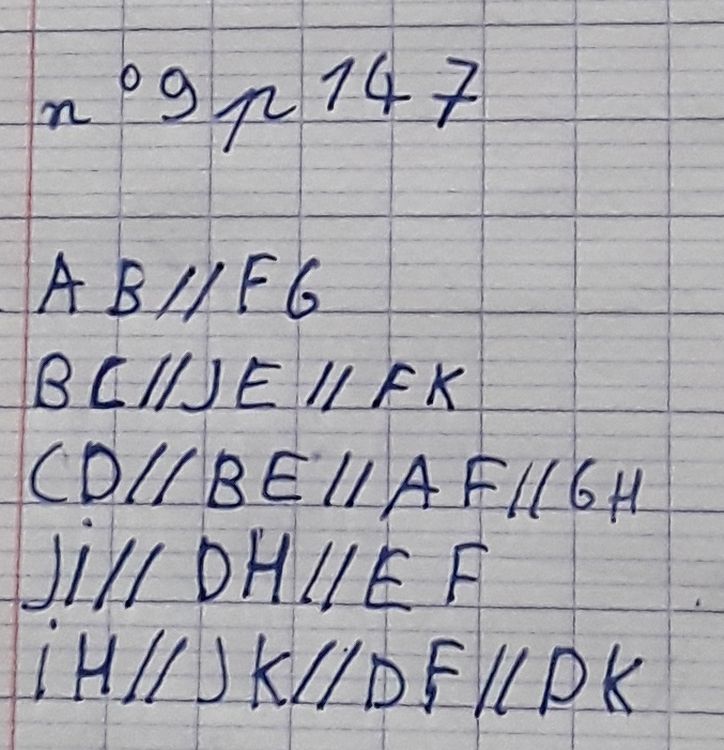 n°9 p 147
AB//FG
BC//JE//FK
CD//BE//AF//GH
Ji//DH//EF
iH//JK//DF//DK